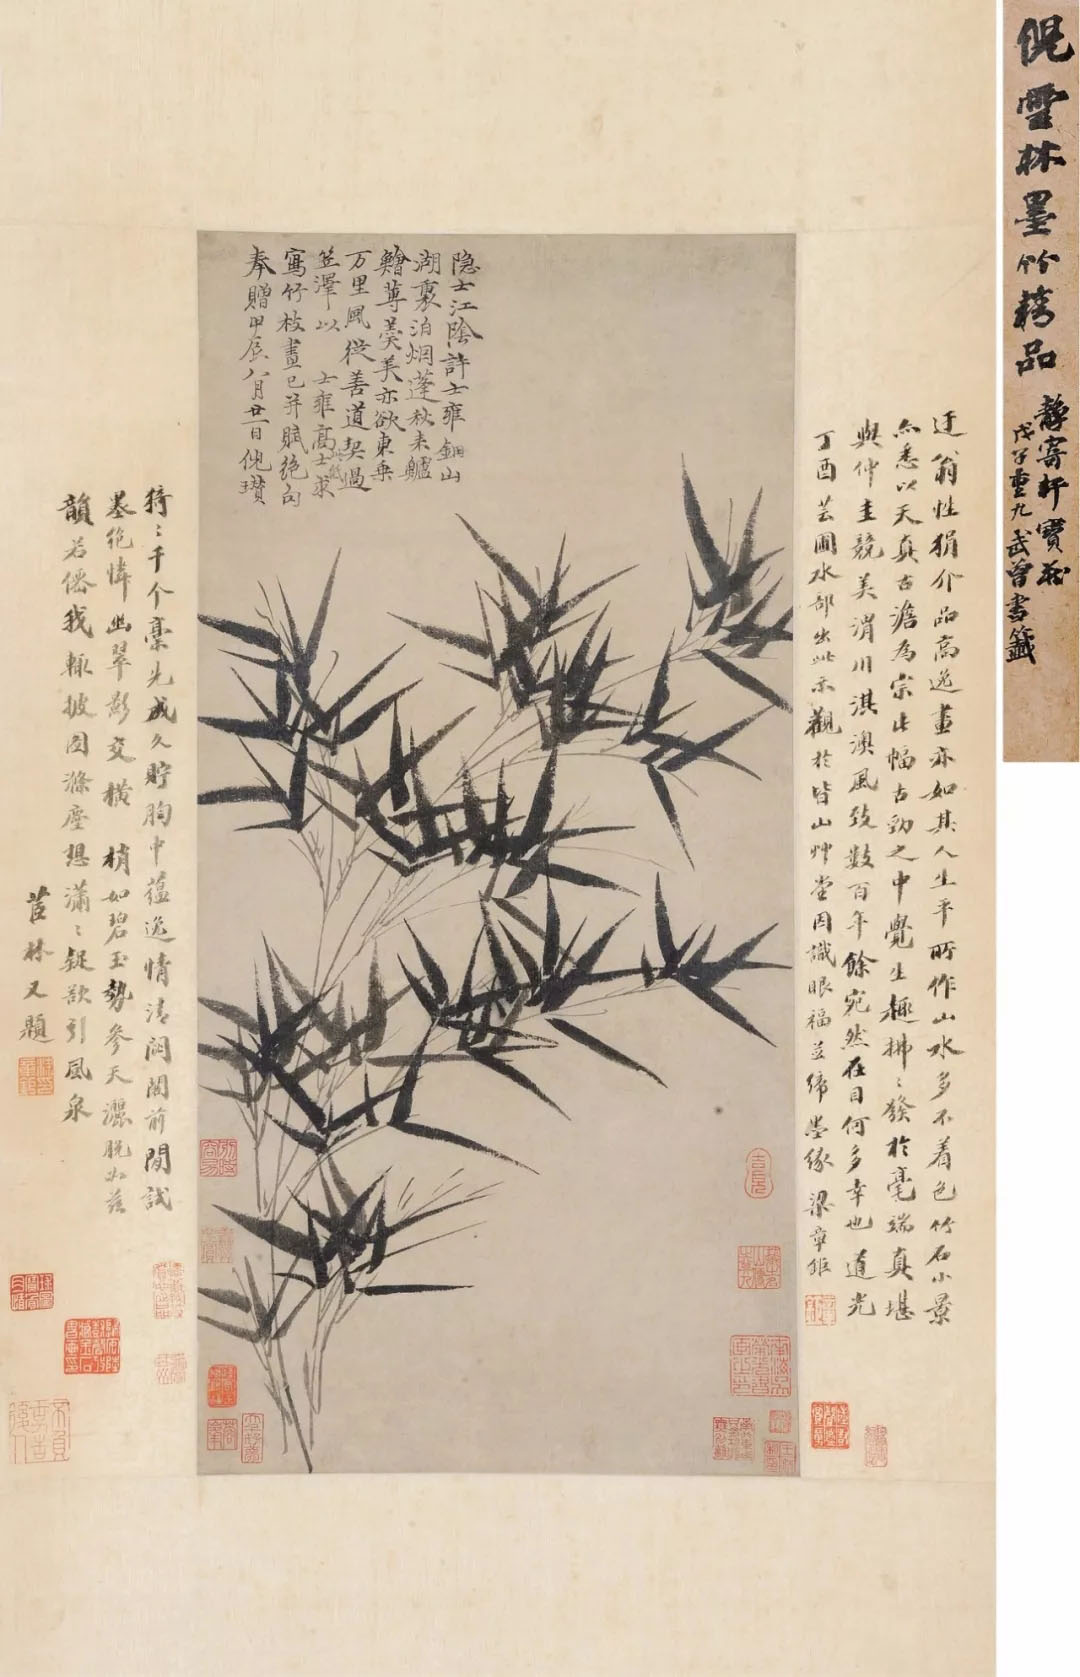 倪雲林墨竹精品
靜寄軒寶藏
戊子重九武曾書籤
隐士江陰許士雍銅山
湖裏泊烟蓬秋来鱸
鱠蓴羮美亦欲東乗
万里風從善道契過
笠澤以士雍高士求此紙
寫竹枝畫已并賦絶句
奉贈甲辰八月廿一日倪瓚
迂翁性狷介品高逸畫亦如其人生平所作山水多不着色竹石小景
亦悉以天真古澹為宗此幅古勁之中覺生趣拂〻發於毫端真堪
與仲圭競美渭川淇澳風致數百年餘宛然在目何多幸也道光
丁酉芸圃水部出此示觀於皆山艸堂因識眼福並締墨缘梁章鉅
猗〻千个稾先成久貯胸中蘊逸情清閟閣前閒試
墨絶憐幽翠影交横梢如碧玉勢參天灑脱如茲
韻若僊我輒披图滌塵想瀟〻疑欲引風泉
茝林又題